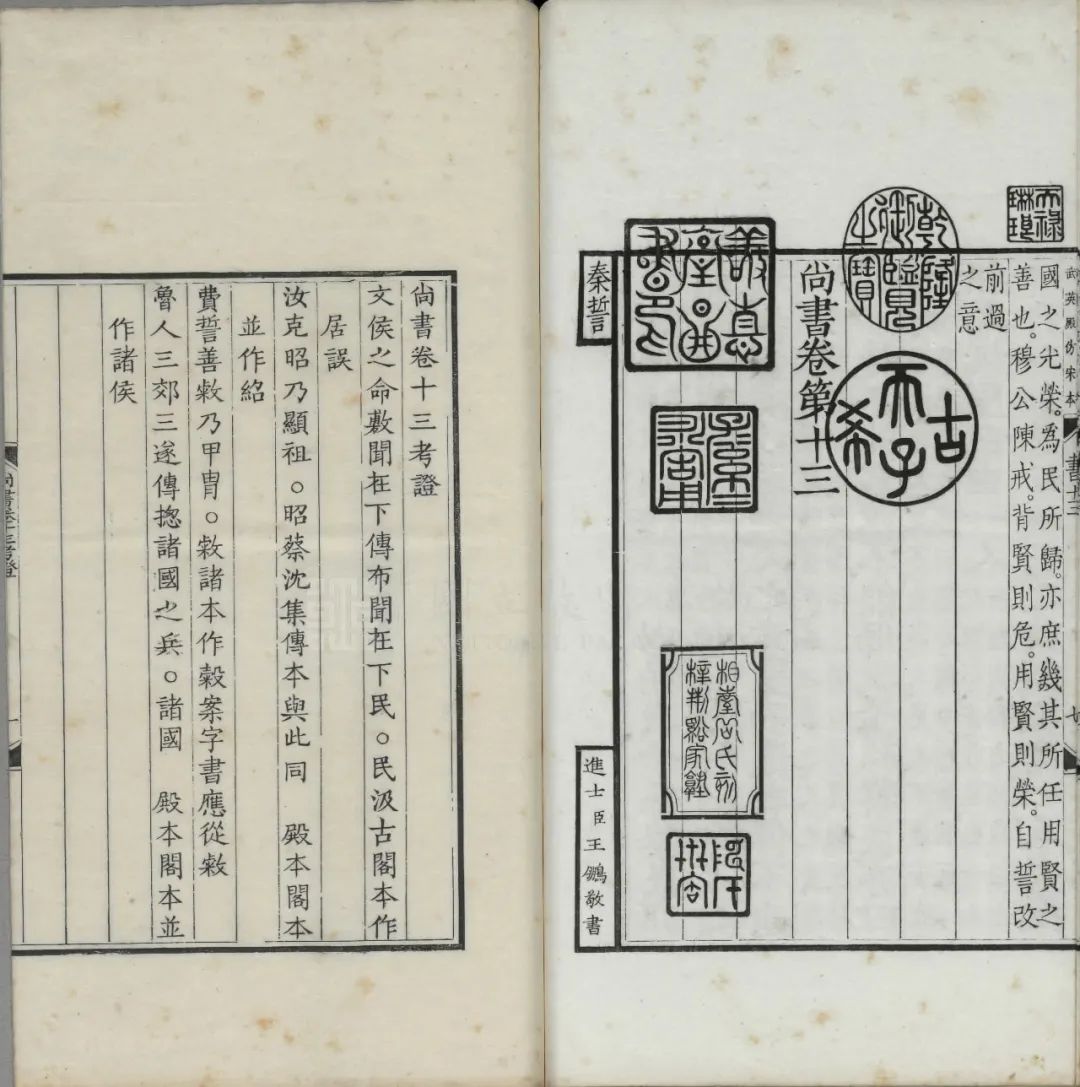 武英殿仿宋本
書十三
國之光榮。為民所歸。亦庶幾其所任用賢之
善也。穆公陳戒。背賢則危。用賢則榮。自誓改
前過
之意
天祿琳琅
乾隆御覽之寶
古稀天子
尚書卷第十三
相臺岳氏刻
梓荊谿家塾
秦誓
進士臣王鵬敬書
尚書卷十三考證
文侯之命敷聞在下傳布聞在下民。民汲古閣本作
居誤
汝克昭乃顯祖。昭蔡沈集傳本與此同 殿本閣本
並作紹
費誓善敹乃甲冑。敹諸本作穀案字書應從敹
魯人三郊三遂傳揔諸國之兵。諸國 殿本閣本並
作諸侯
尚書卷十三考證